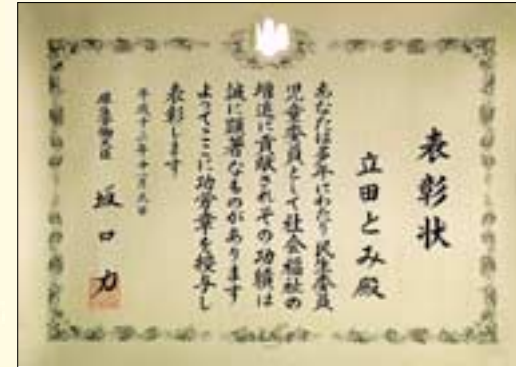 表彰状
立田とみ殿
あなたは多年にわたり民生委員
児童委員として社会福祉の
増進に貢献されその功績は
誠に顕著なものがあります
よってここに功労章を授与し
表彰します
平成十三年十一月
厚生労働大臣
坂口力